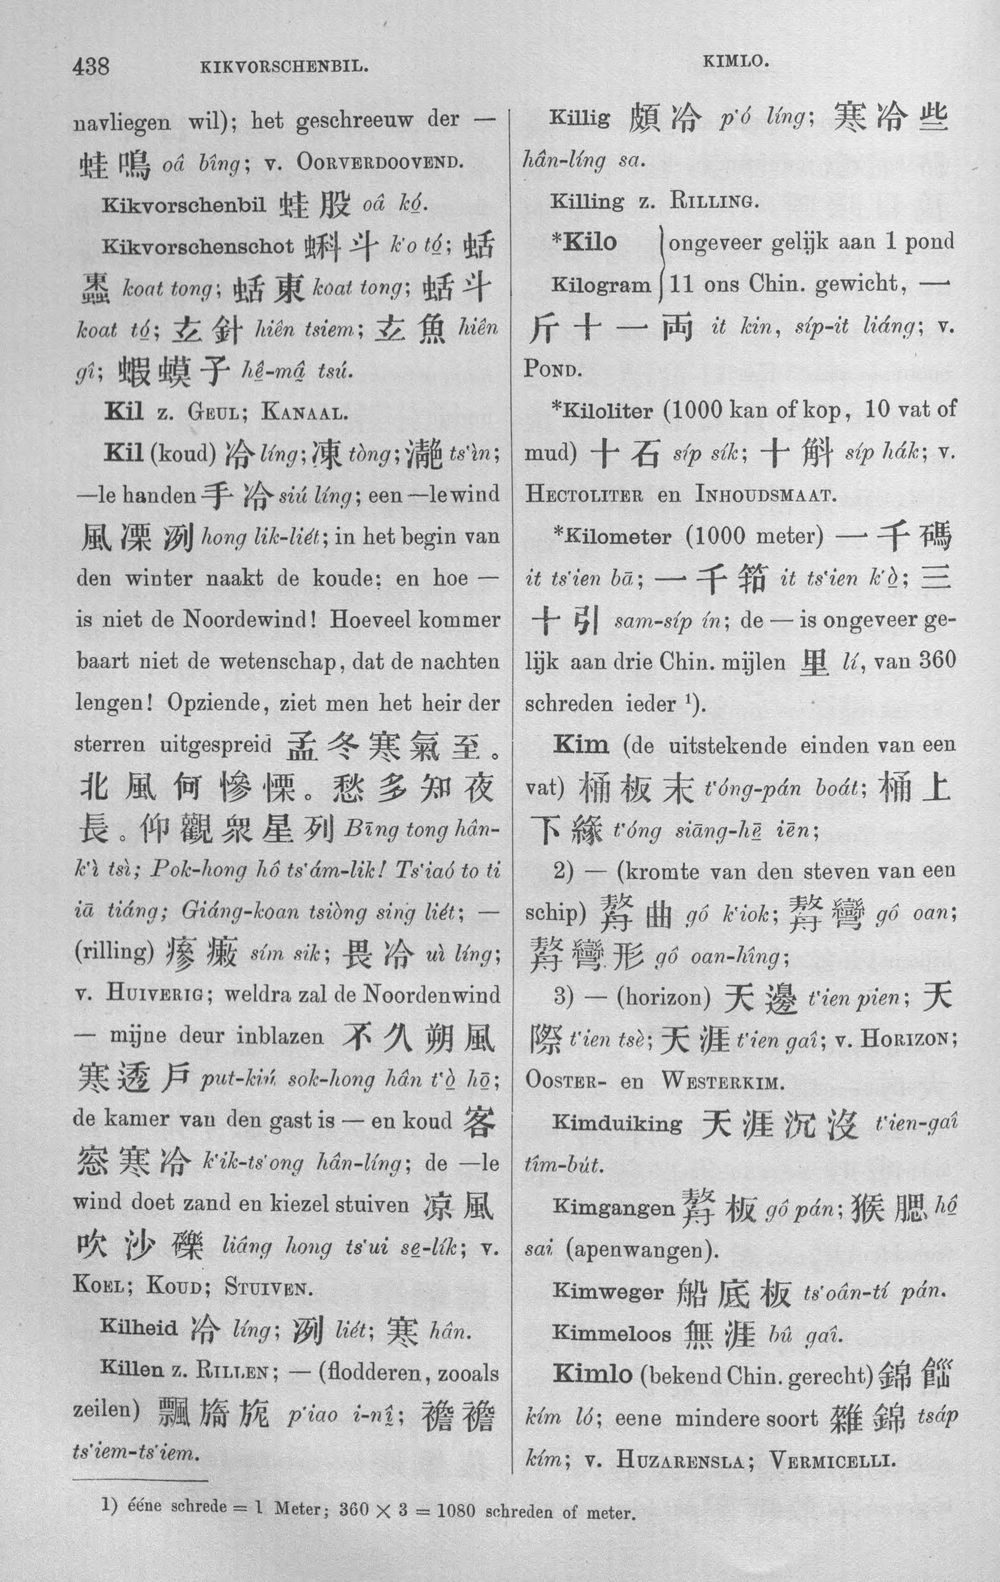 438
KIKVORSCHENBIL.
KIMLO.
navliegen wil); het geschreeuw der —
蛙鳴 oâ bîng; v. OORVERDOOVEND.
Kikvorschenbil 蛙股 oâ kó̱.
Kikvorschenschot 蝌斗 k‘o tó̱; 蛞
蠹 koat tong; 蛞東 koat tong; 蛞斗
koat tó̱; 玄針 hiên tsiem; 玄魚 hiên
gî; 蝦蟆子 hê̱-mâ̱ tsú.
Kil z. GEUL; KANAAL.
Kil (koud) 冷 líng; 凍 tòng; 瀞 ts‘ìn;
—le handen 手冷 siú líng; een —le wind
風凓冽 hong lik-liét; in het begin van
den winter naakt de koude; en hoe —
is niet de Noordewind! Hoeveel kommer
baart niet de wetenschap, dat de nachten
lengen! Opziende, ziet men het heir der
sterren uitgespreid 孟冬寒氣至。
北風何慘慄。愁多知夜
長。仰觀衆星列 Bīng tong hân-
k‘ì tsì; Pok-hong hô ts‘ám-lik! Ts‘iaó to ti
iā tiáng; Giáng-koan tsiòng sing liét; —
(rilling) 瘮瘷 sím sik; 畏冷 uì líng;
v. HUIVERIG; weldra zal de Noordenwind
— mijne deur inblazen 不久朔風
寒透戶 put-kiú sok-hong hân t‘ò̱ hō;
de kamer van den gast is — en koud 客
窓寒冷 k‘ik-ts‘ong hân-líng; de —le
wind doet zand en kiezel stuiven 凉風
吹沙礫 liâng hong ts‘ui se̱-lík; v.
KOEL; KOUD; STUIVEN.
Kilheid 冷 líng; 冽 liét; 寒 hân.
Killen z. RILLEN; — (flodderen, zooals
zeilen) 飄旖旎 p‘iao i-nî̱; 襜襜
ts‘iem-ts‘iem.
Killig 頗冷 p‘ó líng; 寒冷些
hân-líng sa.
Killing z. RILLING.
*Kilo ⎫ ongeveer gelijk aan 1 pond
Kilogram ⎭ 11 ons Chin. gewicht, 一
斤十一両 it kin, síp-it liáng; v.
POND.
*Kiloliter (1000 kan of kop, 10 vat of
mud) 十石 síp sík; 十斛 síp hák; v.
HECTOLITER en INHOUDSMAAT.
*Kilometer (1000 meter) 一千碼
it ts‘ien bā; 一千箁 it ts‘ien k‘ò̱; 三
十引 sam-síp ín; de — is ongeveer ge-
lijk aan drie Chin. mijlen 里 lí, van 360
schreden ieder ¹).
Kim (de uitstekende einden van een
vat) 桶板末 t‘óng-pán boát; 桶上
下緣 t‘óng siāng-hē̱ iēn;
2) — (kromte van den steven van een
schip) 曲 gô k‘iok; 彎 gô oan;
彎形 gô oan-hîng;
3) — (horizon) 天邊 t‘ien pien; 天
際 t‘ien tsè; 天涯 t‘ien gaî; v. HORIZON;
OOSTER- en WESTERKIM.
Kimduiking 天涯沉沒 t‘ien-gaî
tîm-bút.
Kimgangen 板 gô pán; 猴腮 hô̱
sai (apenwangen).
Kimweger 船底板 ts‘oân-tí pán.
Kimmeloos 無涯 bû gaî.
Kimlo (bekend Chin. gerecht) 錦
kím ló; eene mindere soort 雜錦 tsáp
kím; v. HUZARENSLA; VERMICELLI.
1) ééne schrede = 1 Meter; 360 × 3 = 1080 schreden of meter.